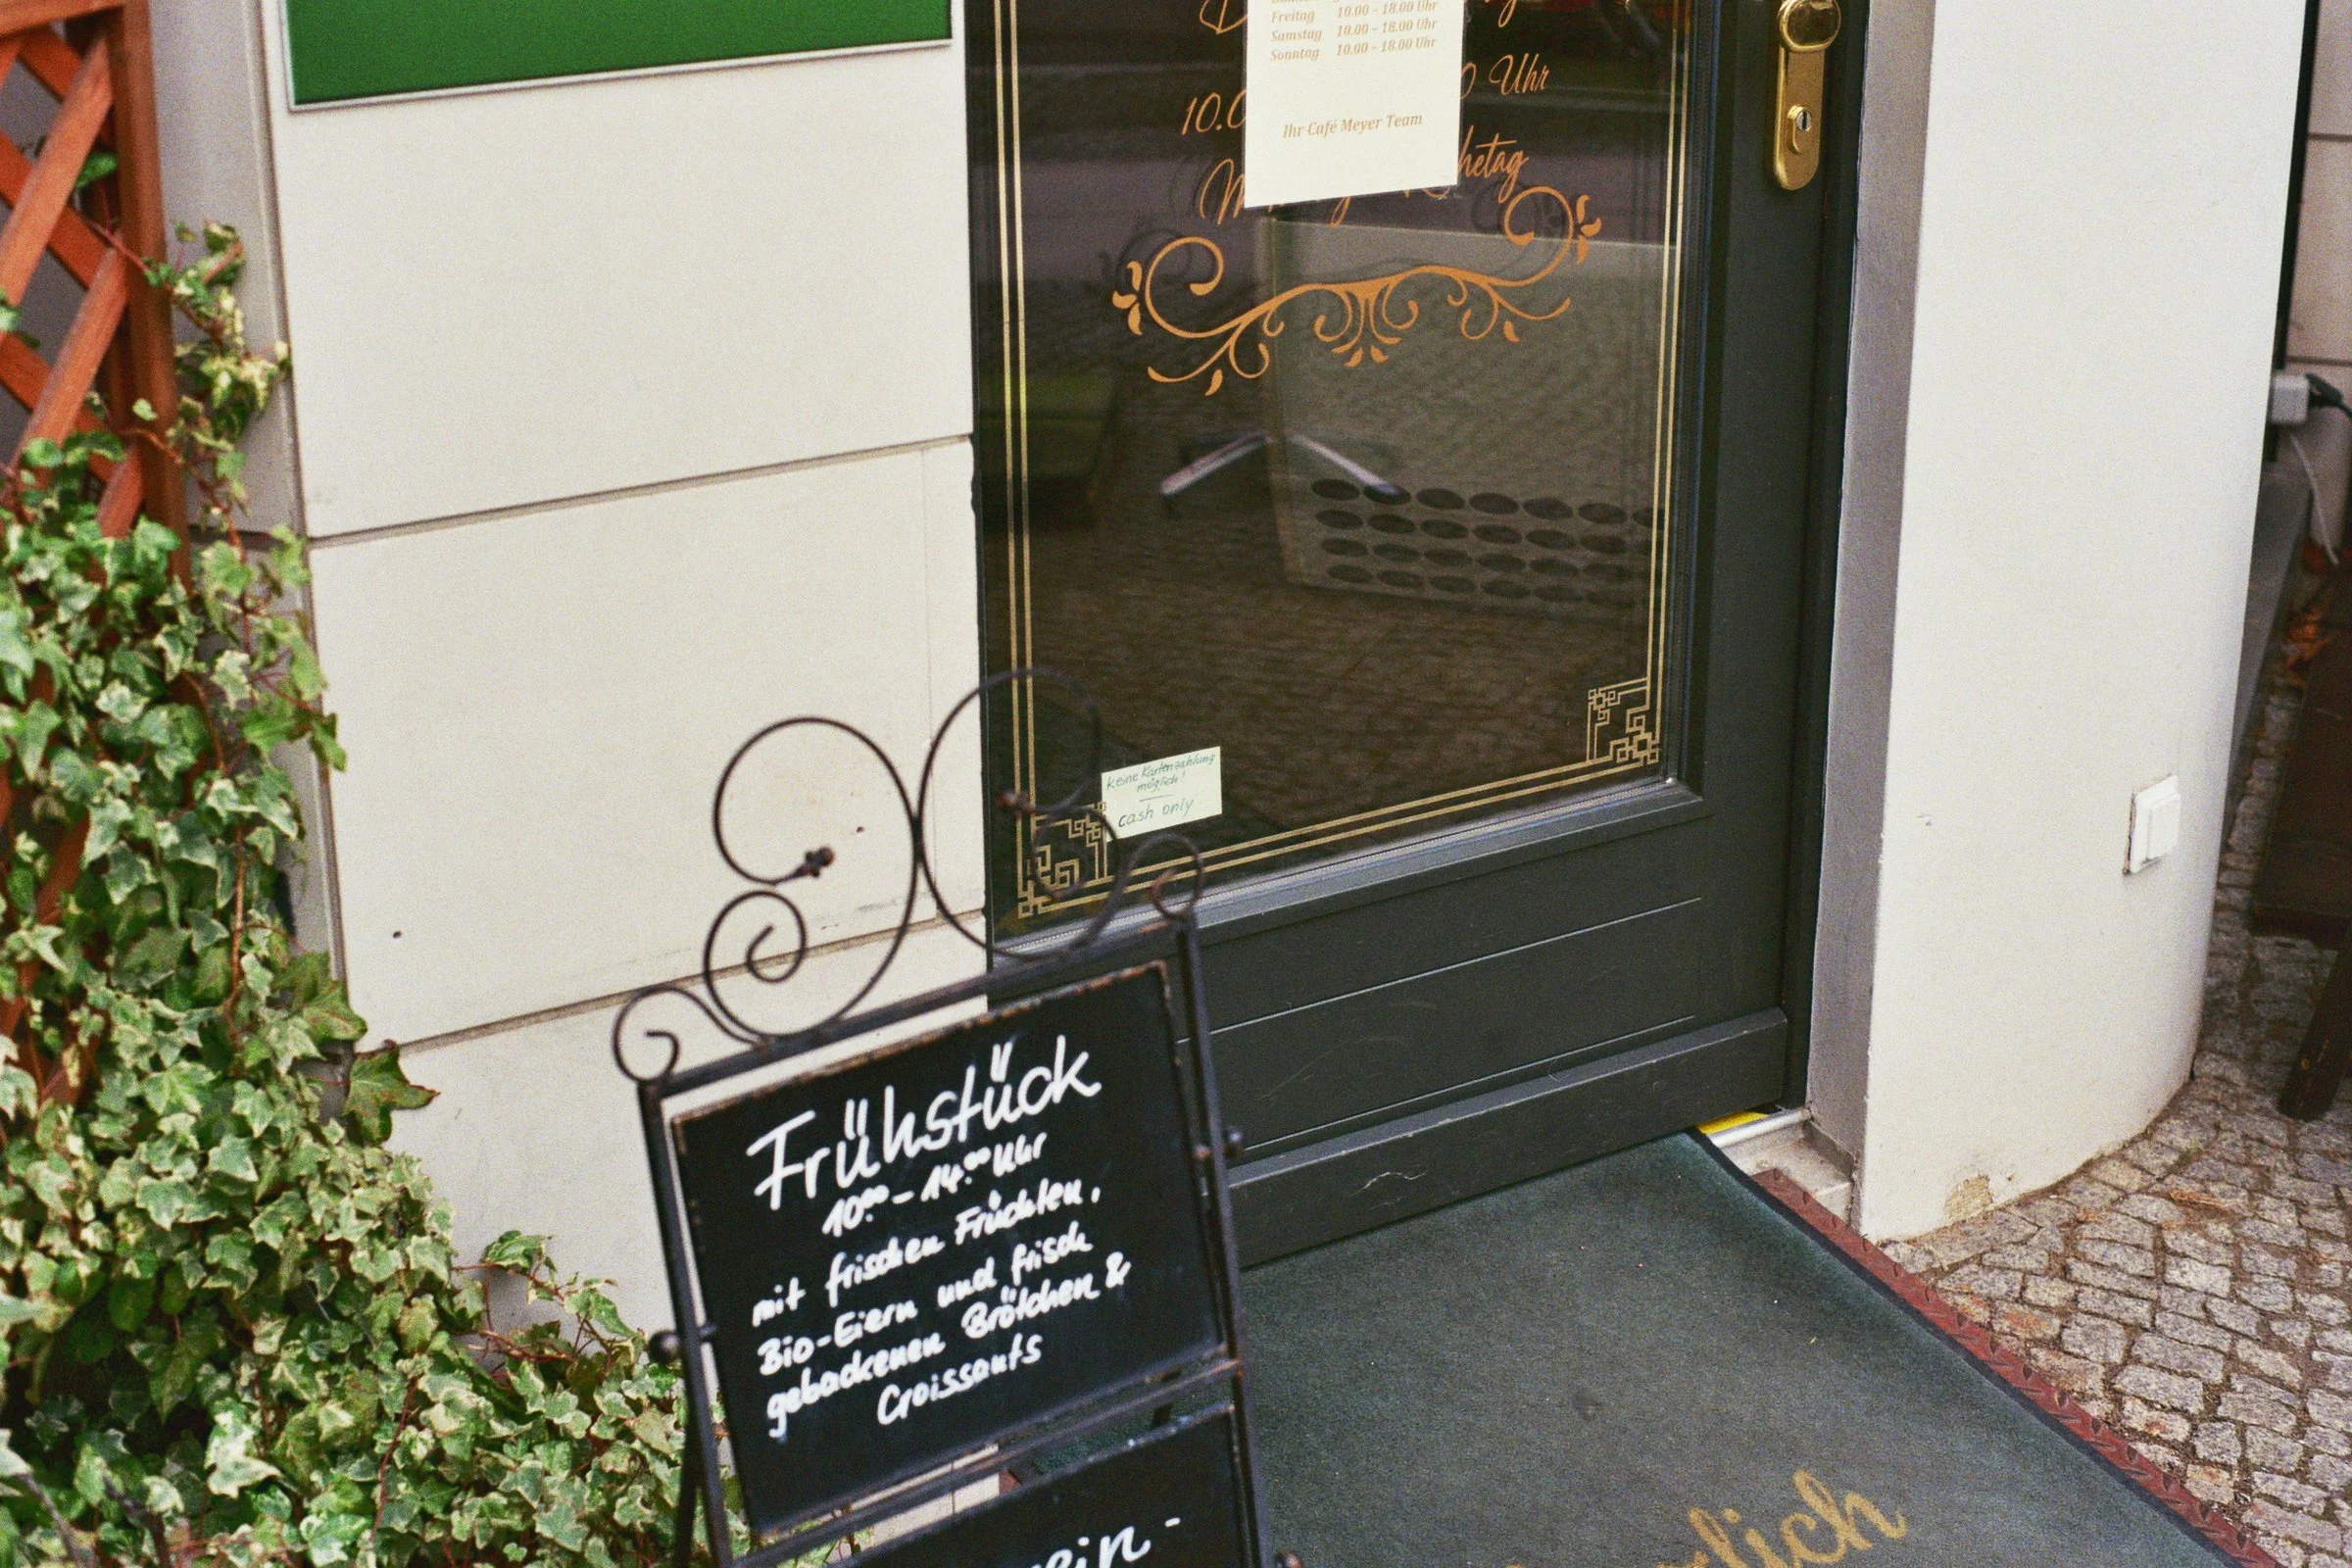 Freitag 10.00 – 18.00 Uhr
Samstag 10.00 – 18.00 Uhr
Sonntag 10.00 – 18.00 Uhr
Ihr Café Meyer Team
Uhr
keine Kartenzahlung
möglich!
cash only
Frühstück
10.00 – 14.00 Uhr
mit frischen Früchten,
Bio-Eiern und frisch
gebackenen Brötchen &
Croissants